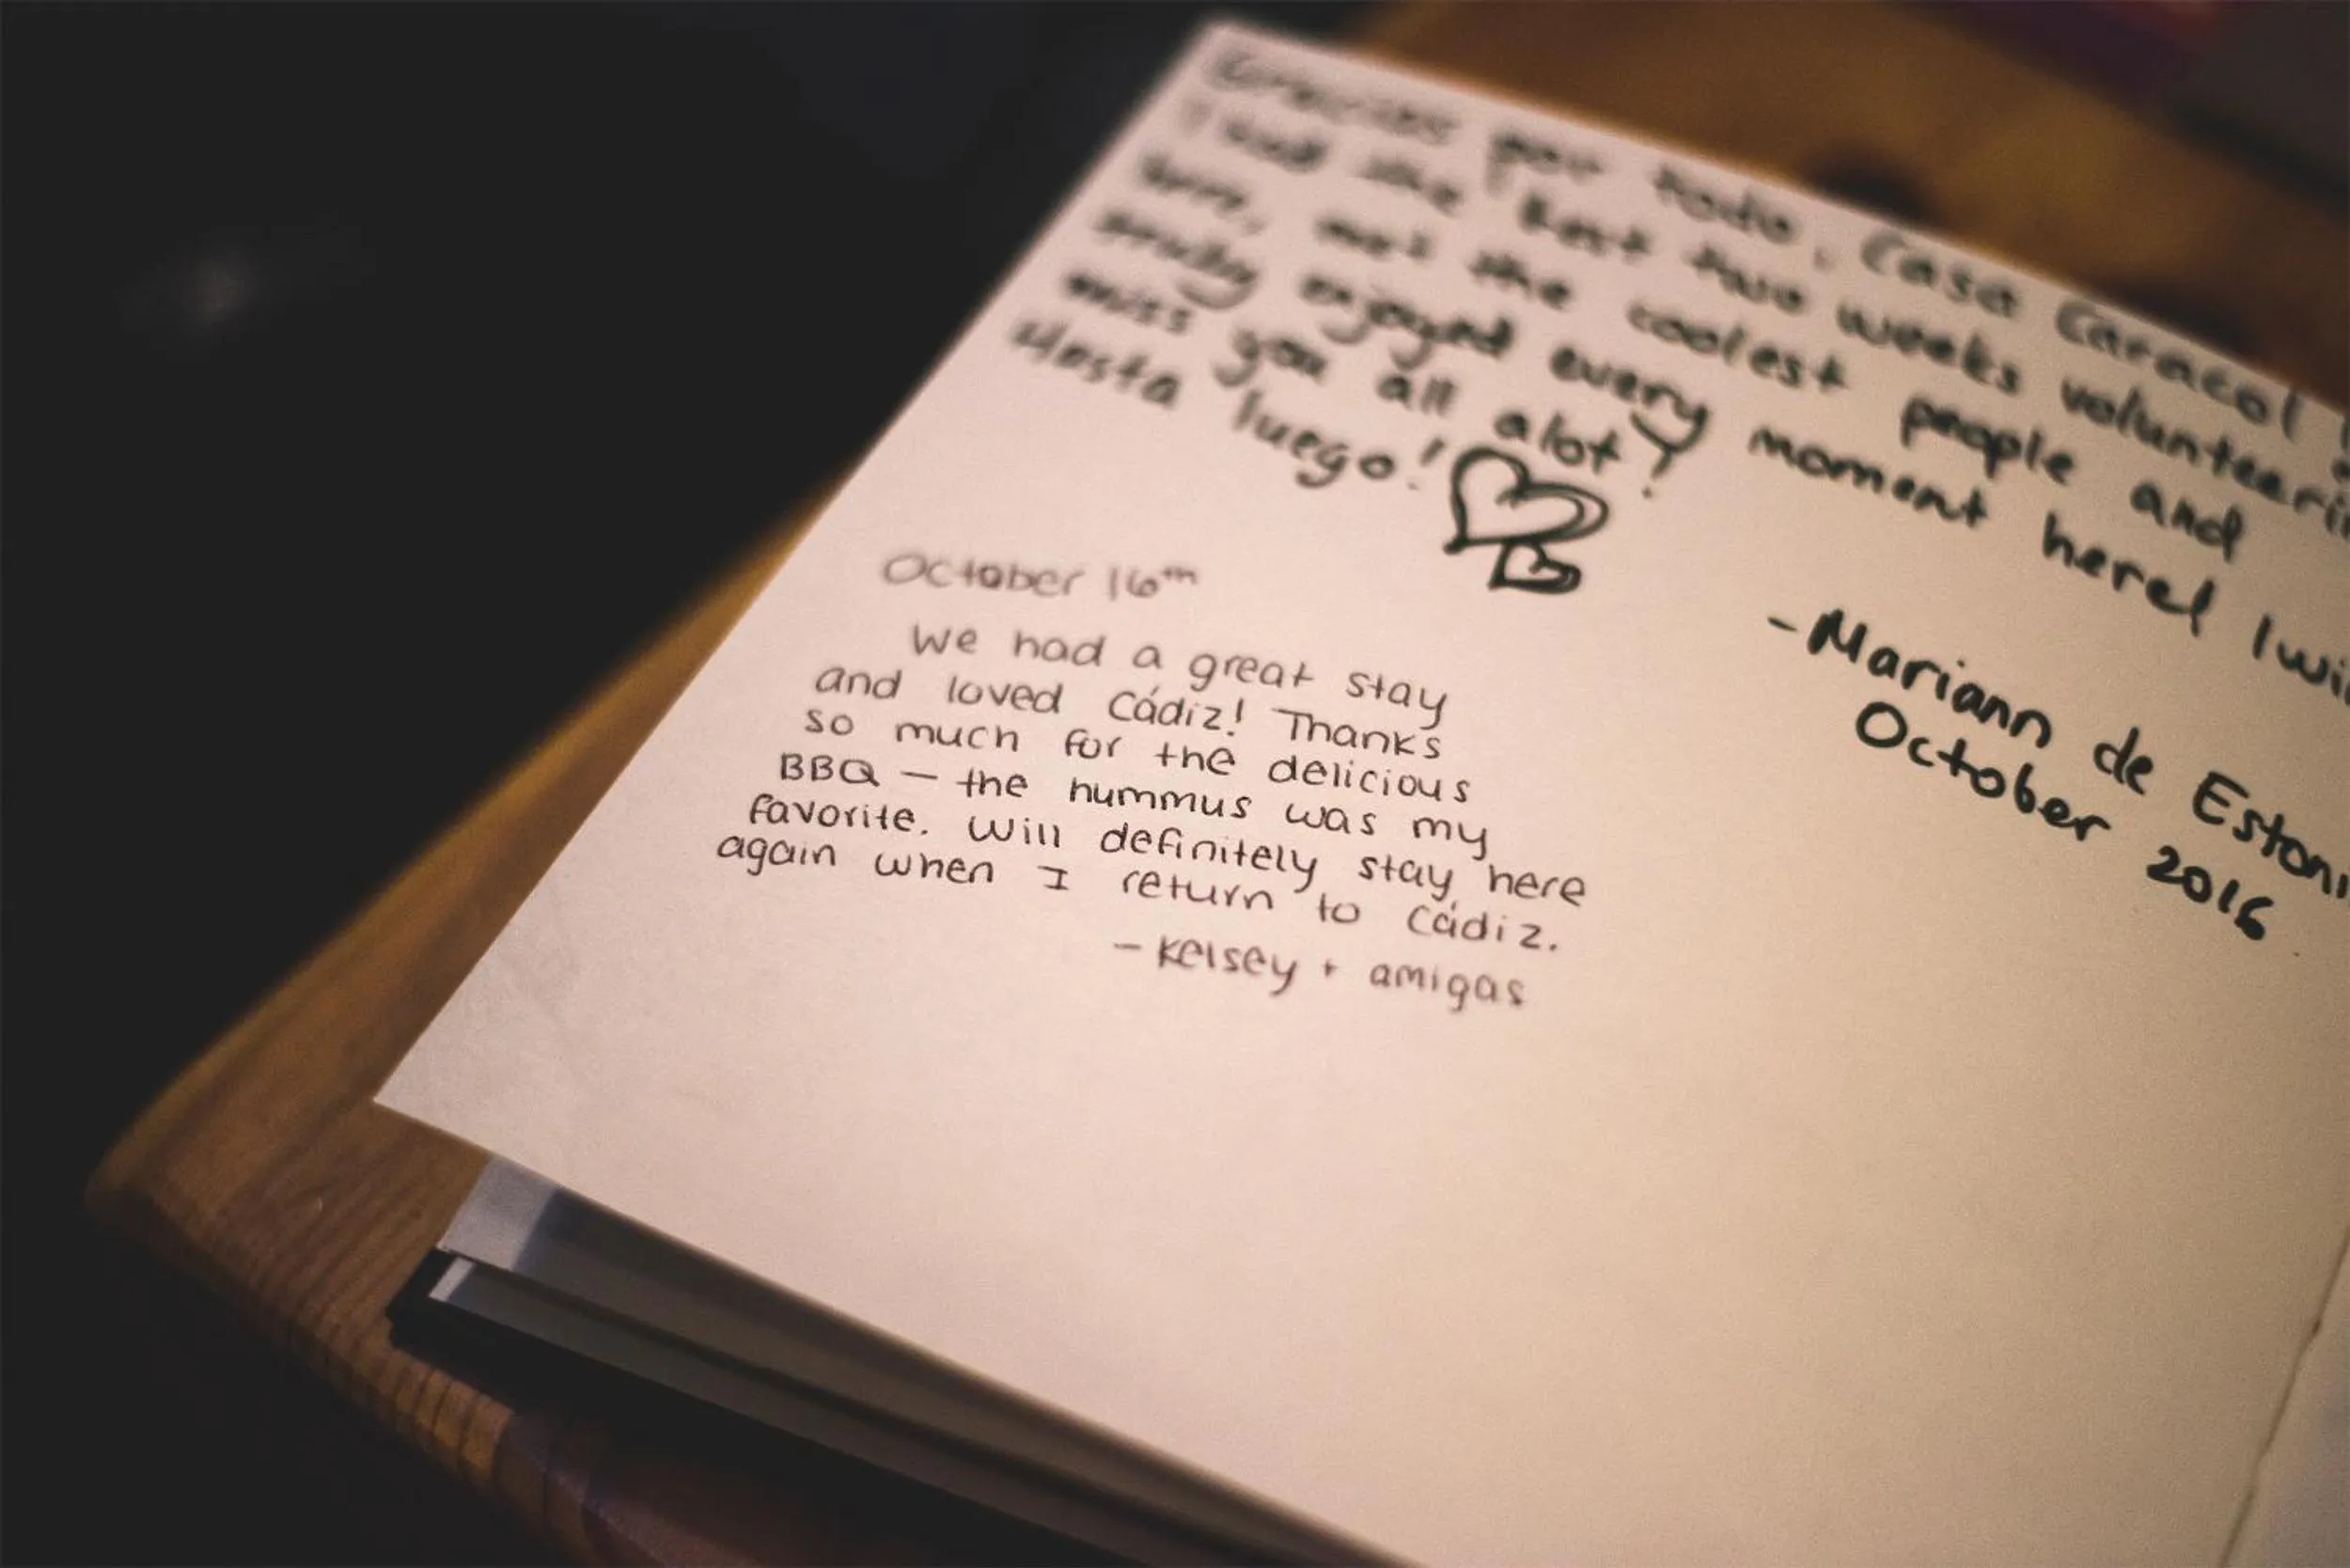 Gracias por todo, Casa Caracol
I had the best two weeks volunteerin
here, met the coolest people and
really enjoyed every moment here! I wi
miss you all alot!
Hasta luego!
-Mariann de Estoni
October 2016
October 16th
We had a great stay
and loved Cádiz! Thanks
so much for the delicious
BBQ — the hummus was my
favorite. Will definitely stay here
again when I return to Cádiz.
- Kelsey + amigas